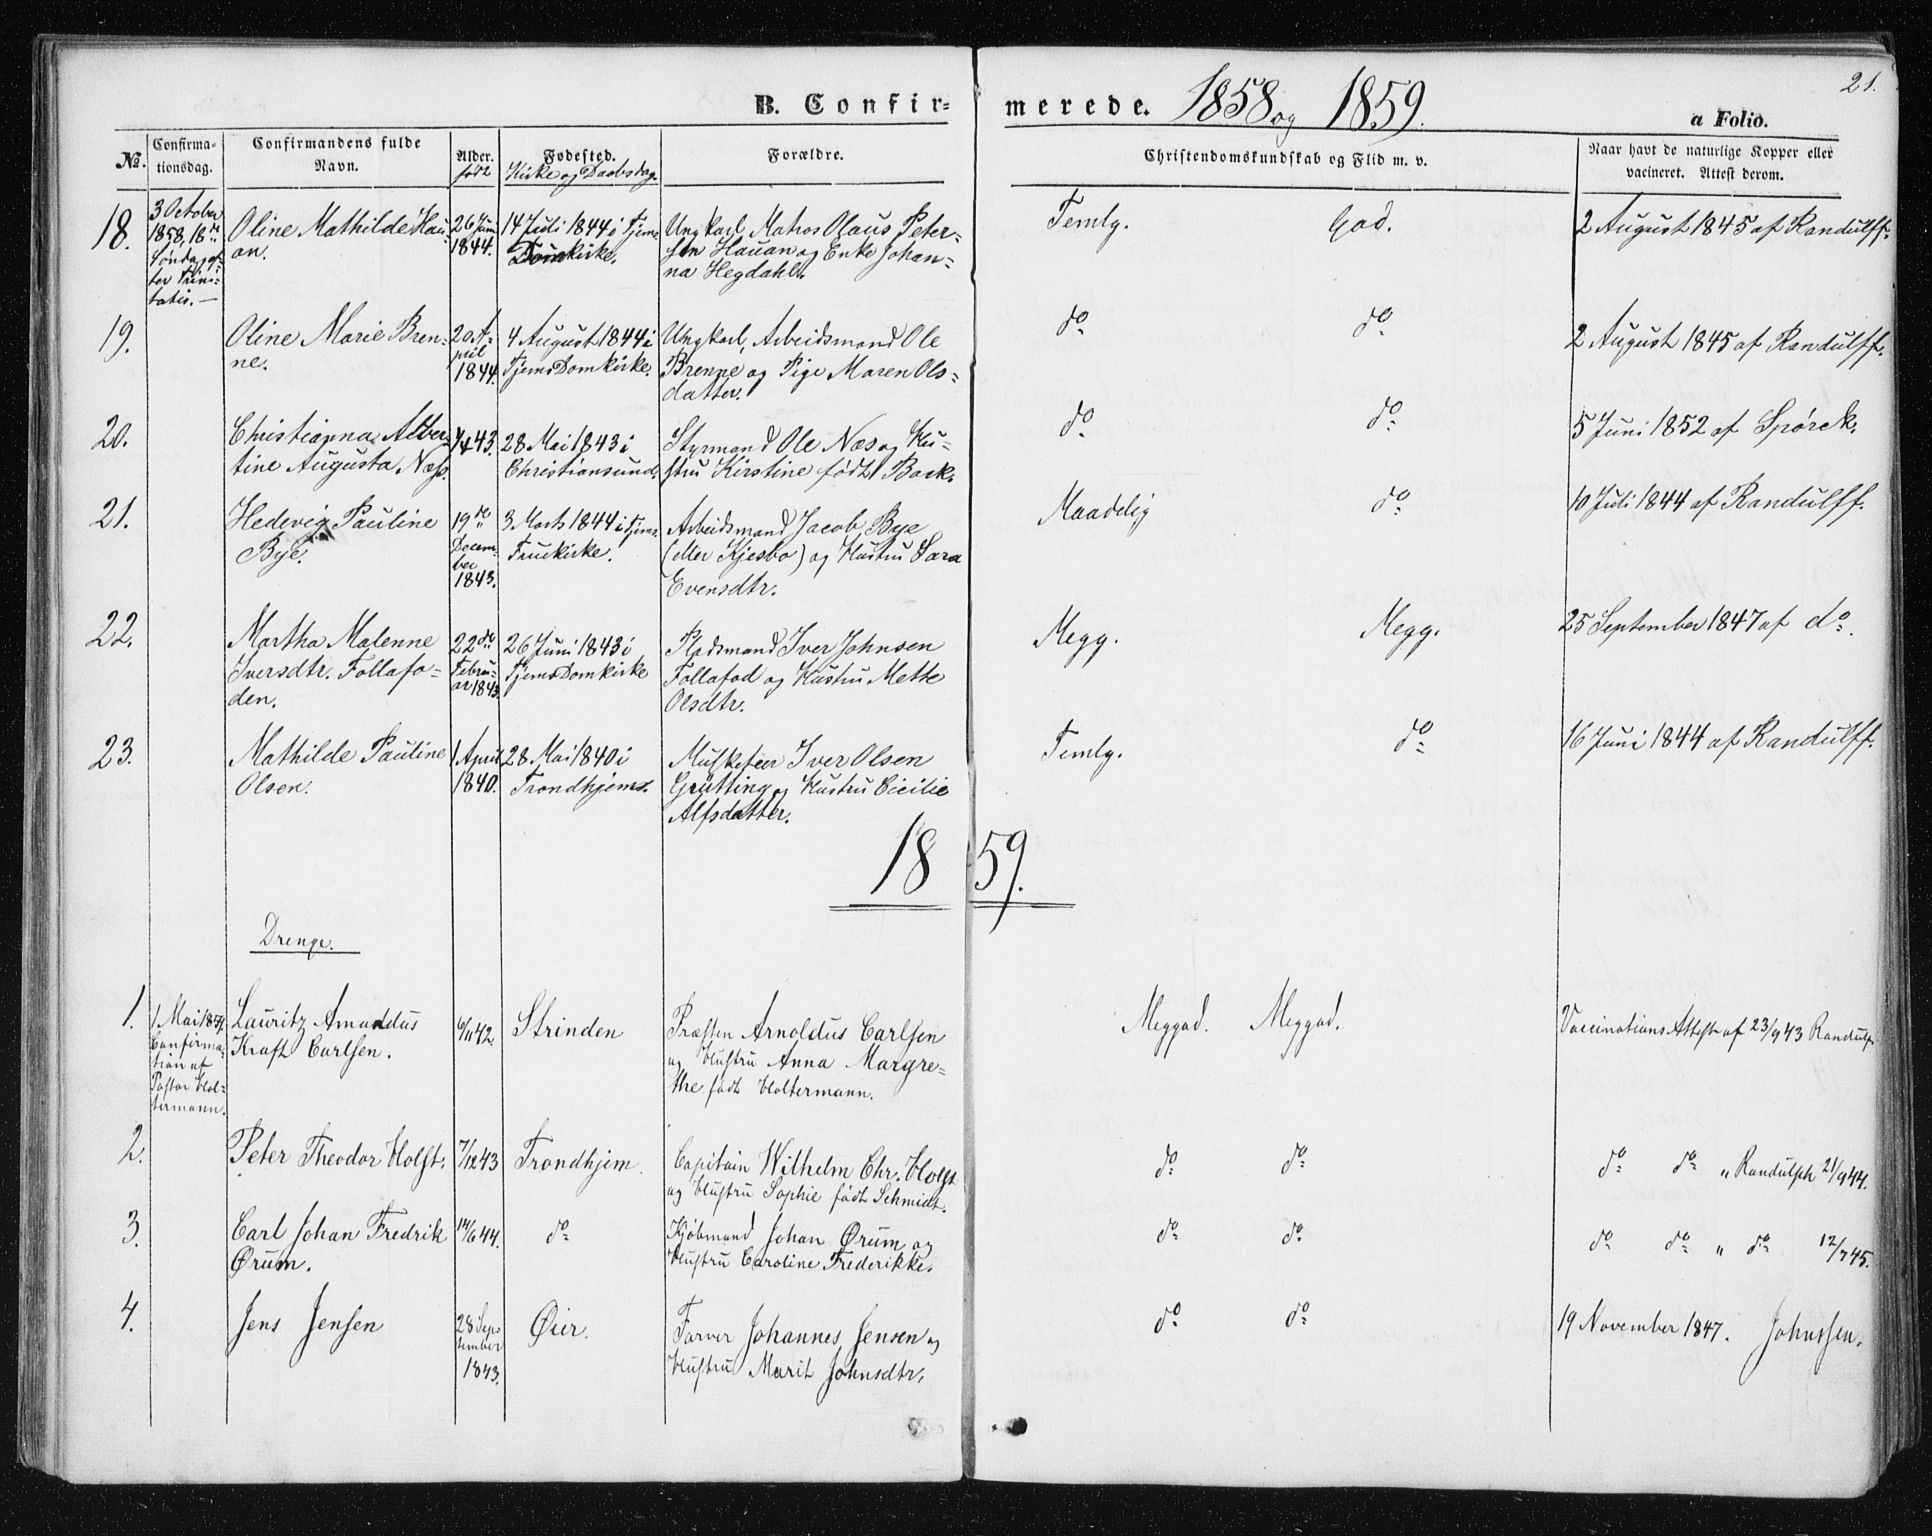 21.
B. Confirmerede. 1858 og 1859. a Folio.
No. Confirmationsdag. Confirmandens fulde Navn. Alder. født Fødested. Kirke og Daabsdag. Forældre. Christendomskundskab og Flid m. v. Naar havt de naturlige Kopper eller vacineret. Attest derom.
18. 3 October 1858, 18de Søndag efter Trinitatis.—
Oline Mathilde Hauan.
26 Juni 1844.
14 Juli 1844 i Tjems Domkirke.
Ungkarl, Matros Olaus Petersen Hauan og Enke Johanna Hegdahl.
Temlg. God.
2 August 1845 af Randulff.
19.
Oline Marie Brenne.
20 April 1844.
4 August 1844 i Tjems Domkirke.
Ungkarl, Arbeidsmand Ole Brenne og Pige Maren Olsdatter.
do do
2 August 1845 af Randulff.
20.
Christianna Albertine Augusta Næss.
28 Mai 1843 i Christiansund.
Styrmand Ole Næs og Hustru Kirstine født Back.
do do
5 Juni 1852 af Spørck.
21.
Hedevig Pauline Bye.
19de December 1843.
3 Marts 1844 i Tjems Fruekirke.
Arbeidsmand Jacob Bye (eller Kjesbo) og Hustru Sara Evensdtr.
Maadelig do
10 Juli 1844 af Randulff.
22.
Martha Malenne Iversdtr. Follafoden.
22de Februar 1843.
26 Juni 1843 i Tjems Domkirke
Pladsmand Iver Johnsen Follafod og Hustru Mette Olsdtr.
Megg. Megg.
25 September 1847 af do.
23.
Mathilde Pauline Olsen.
1 April 1840.
28 Mai 1840 i Trondhjems.
Musketeer Iver Olsen Grøtting og Hustru Cicilie Alfsdatter.
Temlg. do
16 Juni 1844 af Randulff.
1859.
Drenge.
1. 1 Mai 1859. Confirmation af Pastor Holtermann.
Lauritz Amandus Kraft Carlsen.
6/11 42.
Strinden
Præsten Arnoldus Carlsen og Hustru Anna Margrethe født Holtermann.
Meggod. Meggod.
Vaccinations Attest af 23/9 43 Randulph
2.
Peter Theodor Holst.
7/12 43
Trondhjem.
Capitain Wilhelm Chr. Holst og Hustru Sophie født Schmidt.
do do
do do " Randulph 21/9 44.
3.
Carl Johan Fredrik Ørum.
14/6 44.
do
Kjøbmand Johan Ørum og Hustru Caroline Frederikke.
do do
do do " do 12/7 45.
4.
Jens Jensen
28 September 1843.
Øier.
Farver Johannes Jensen og Hustru Marit Johnsdtr.
do do
19 November 1847. Johnssen.